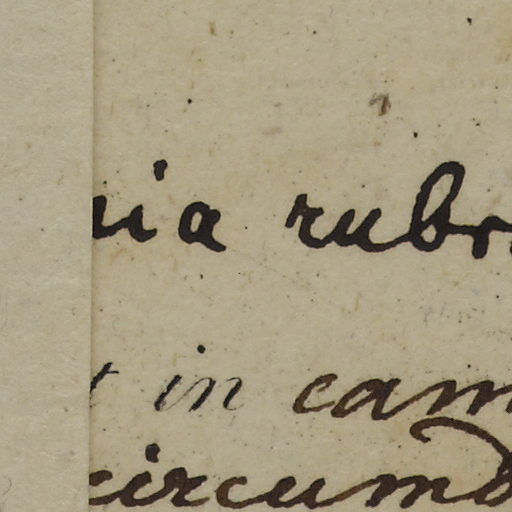 nia rubr
t in cam
circumd